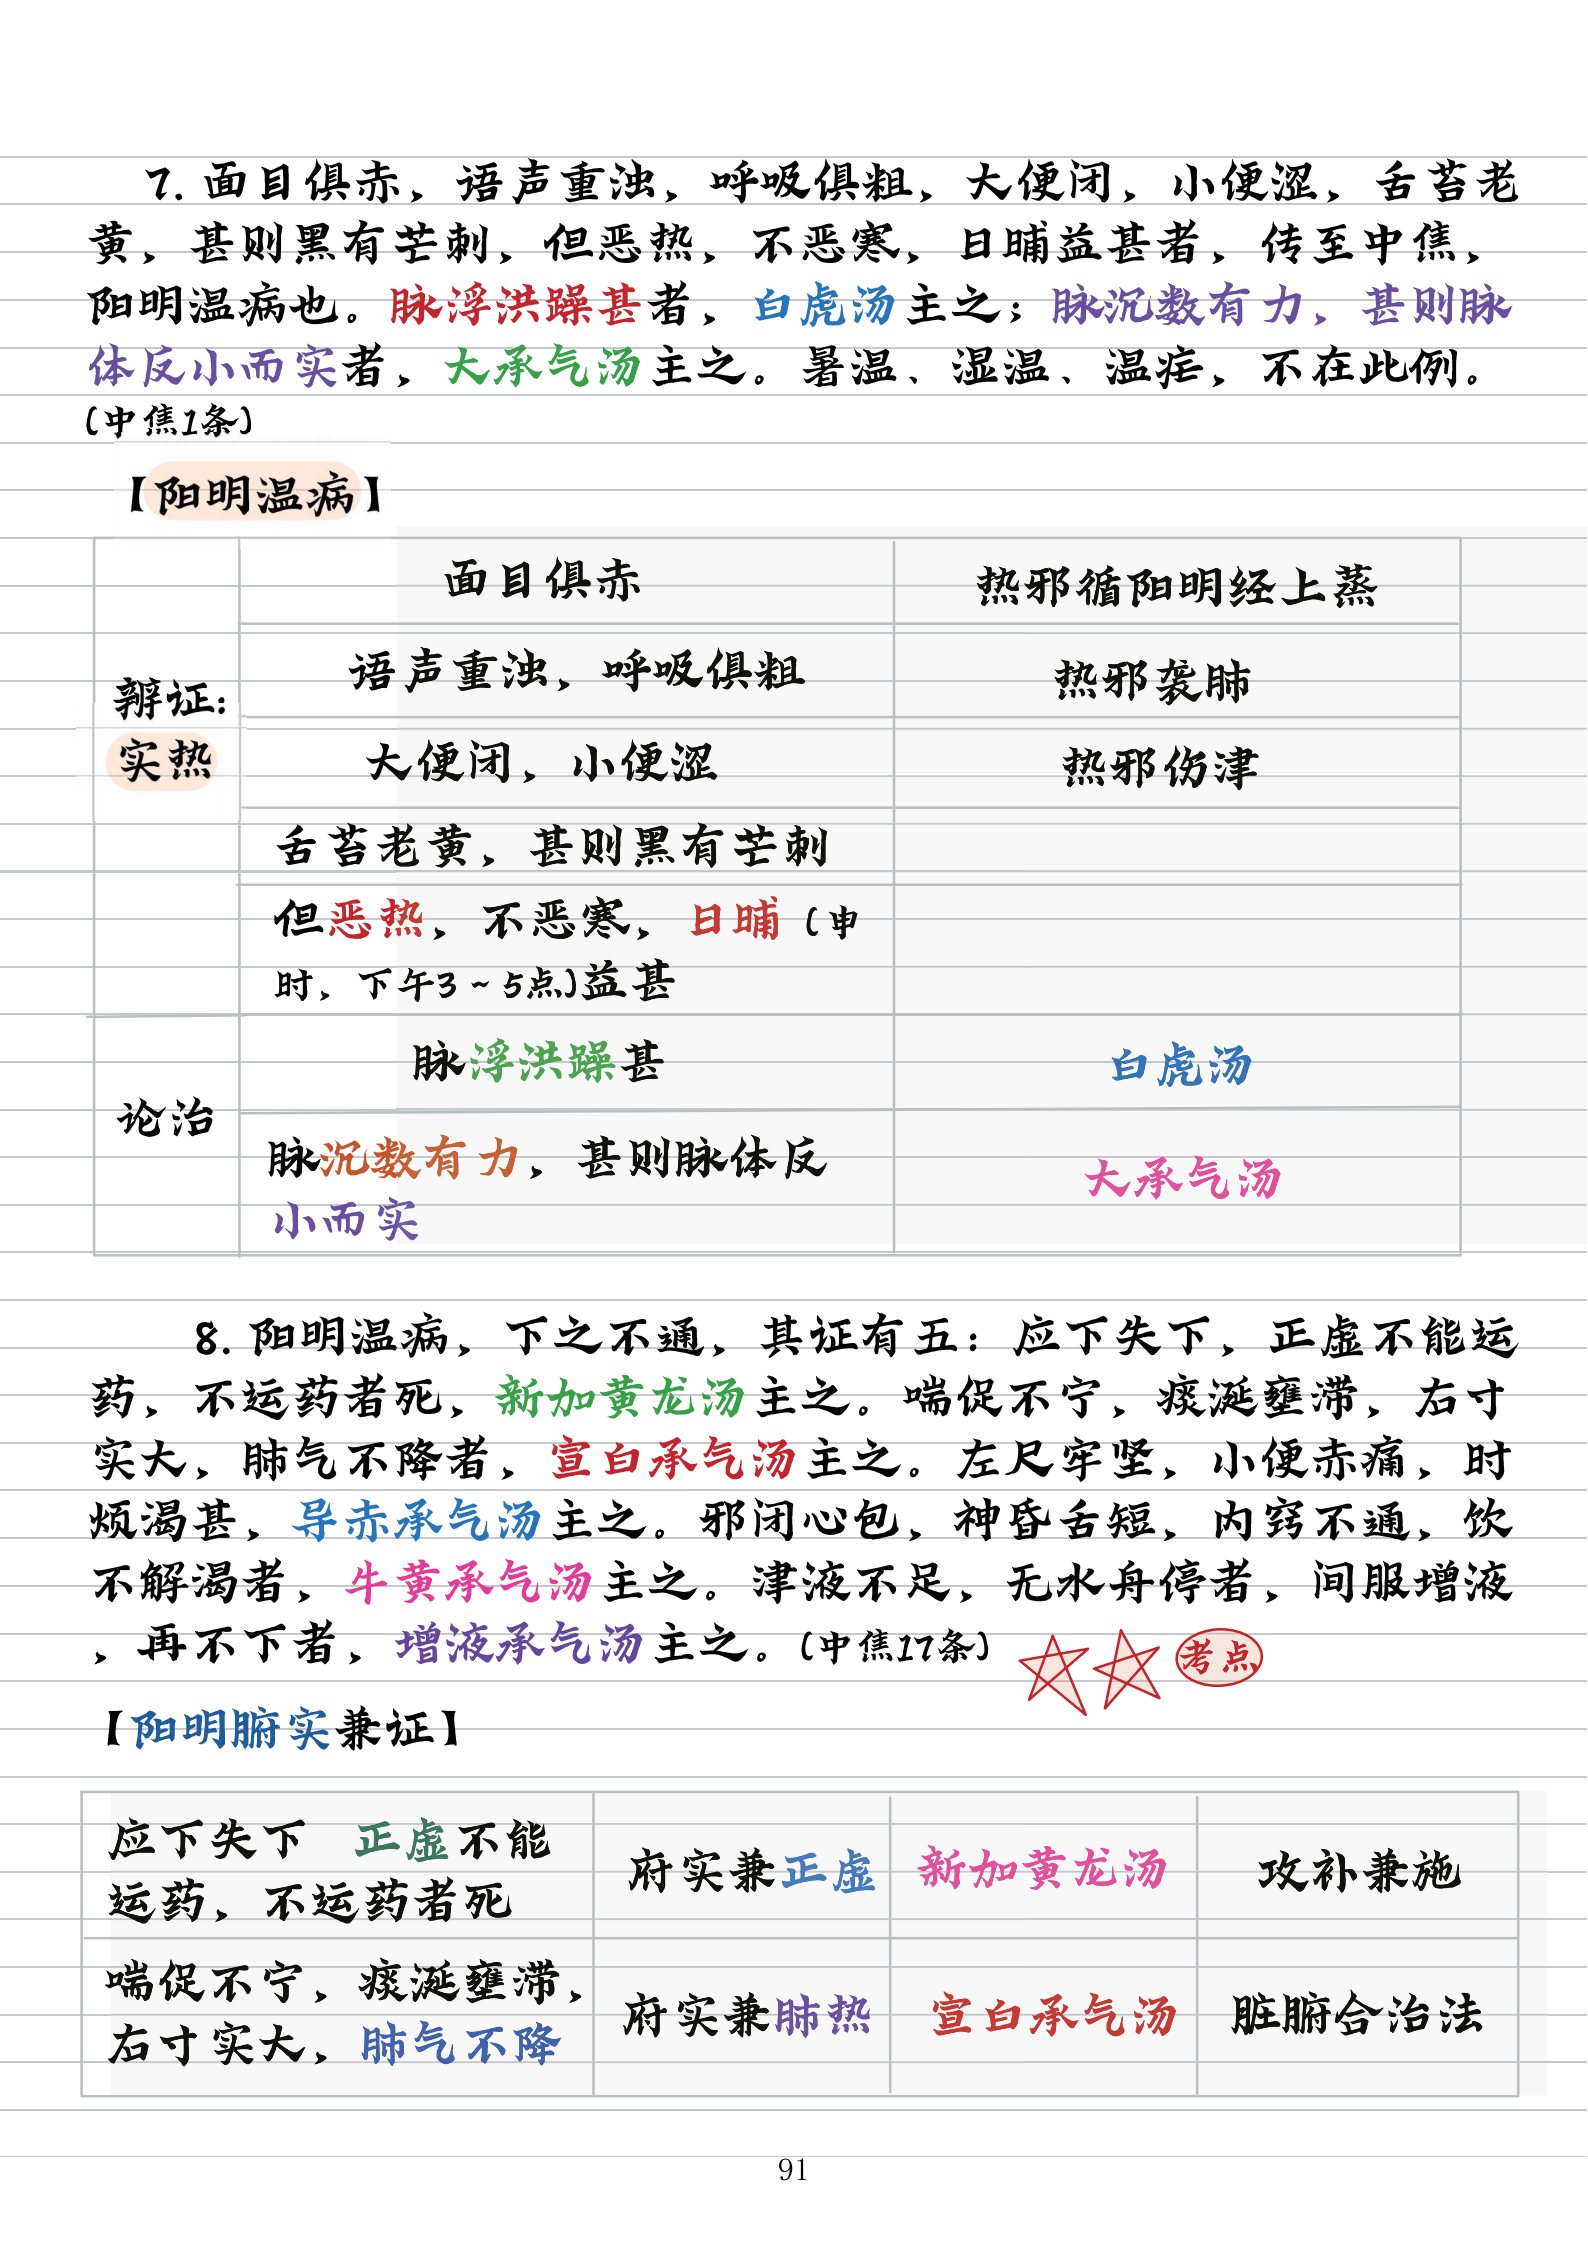 7. 面目俱赤，语声重浊，呼吸俱粗，大便闭，小便涩，舌苔老
黄，甚则黑有芒刺，但恶热，不恶寒，日晡益甚者，传至中焦，
阳明温病也。脉浮洪躁甚者，白虎汤主之；脉沉数有力，甚则脉
体反小而实者，大承气汤主之。暑温、湿温、温疟，不在此例。
（中焦1条）
【阳明温病】
面目俱赤 热邪循阳明经上蒸
语声重浊，呼吸俱粗 热邪袭肺
辨证：
实热
大便闭，小便涩 热邪伤津
舌苔老黄，甚则黑有芒刺
但恶热，不恶寒，日晡（申
时，下午3～5点）益甚
脉浮洪躁甚 白虎汤
论治
脉沉数有力，甚则脉体反
小而实
大承气汤
8. 阳明温病，下之不通，其证有五：应下失下，正虚不能运
药，不运药者死，新加黄龙汤主之。喘促不宁，痰涎壅滞，右寸
实大，肺气不降者，宣白承气汤主之。左尺牢坚，小便赤痛，时
烦渴甚，导赤承气汤主之。邪闭心包，神昏舌短，内窍不通，饮
不解渴者，牛黄承气汤主之。津液不足，无水舟停者，间服增液
，再不下者，增液承气汤主之。（中焦17条）
考点
【阳明腑实兼证】
应下失下 正虚不能
运药，不运药者死
府实兼正虚 新加黄龙汤 攻补兼施
喘促不宁，痰涎壅滞，
右寸实大，肺气不降
府实兼肺热 宣白承气汤 脏腑合治法
91